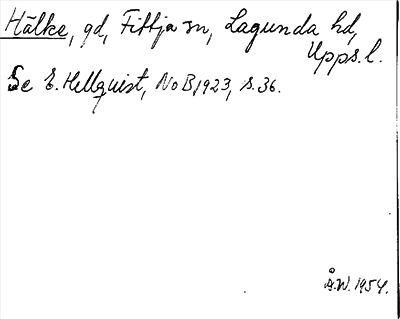 Hälke, gd, Fittja sn, Lagunda hd,
Upps. l.
Se E. Hellquist, NoB 1923, s. 36.
Å.W. 1954.